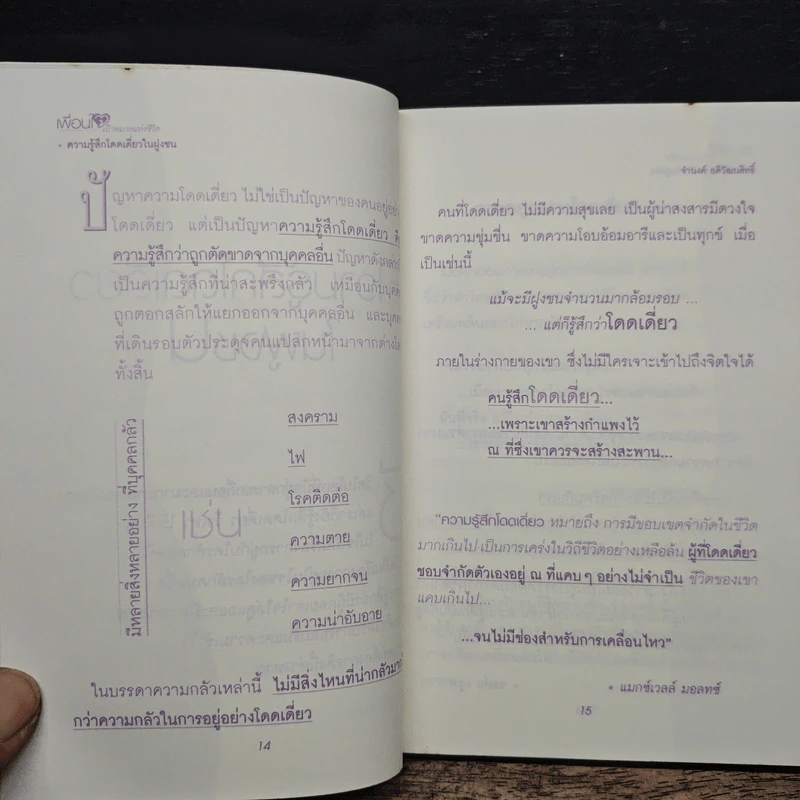 เพื่อนใจ
เป้าหมายแห่งชีวิต
• ความรู้สึกโดดเดี่ยวในฝูงชน
ปัญหาความโดดเดี่ยว ไม่ใช่เป็นปัญหาของคนอยู่อย่าง
โดดเดี่ยว แต่เป็นปัญหาความรู้สึกโดดเดี่ยว
ความรู้สึกว่าถูกตัดขาดจากบุคคลอื่น ปัญหาดังกล่าว
เป็นความรู้สึกที่น่าสะพรึงกลัว เหมือนกับบุคค
ถูกตอกสลักให้แยกออกจากบุคคลอื่น และบุคค
ที่เดินรอบตัวประดุจคนแปลกหน้ามาจากต่าง
ทั้งสิ้น
มีหลายสิ่งหลายอย่าง ที่บุคคลกลัว
สงคราม
ไฟ
โรคติดต่อ
ความตาย
ความยากจน
ความน่าอับอาย
ในบรรดาความกลัวเหล่านี้ ไม่มีสิ่งไหนที่น่ากลัวมาก
กว่าความกลัวในการอยู่อย่างโดดเดี่ยว
14
จำนงค์ อดิวัฒนสิทธิ์
คนที่โดดเดี่ยว ไม่มีความสุขเลย เป็นผู้น่าสงสารมีดวงใจ
ขาดความชุ่มชื่น ขาดความโอบอ้อมอารีและเป็นทุกข์ เมื่อ
เป็นเช่นนี้
แม้จะมีฝูงชนจำนวนมากล้อมรอบ ...
... แต่ก็รู้สึกว่าโดดเดี่ยว
ภายในร่างกายของเขา ซึ่งไม่มีใครเจาะเข้าไปถึงจิตใจได้
คนรู้สึกโดดเดี่ยว...
...เพราะเขาสร้างกำแพงไว้
ณ ที่ซึ่งเขาควรจะสร้างสะพาน...
"ความรู้สึกโดดเดี่ยว หมายถึง การมีขอบเขตจำกัดในชีวิต
มากเกินไป เป็นการเคร่งในวิถีชีวิตอย่างเหลือล้น ผู้ที่โดดเดี่ยว
ชอบจำกัดตัวเองอยู่ ณ ที่แคบๆ อย่างไม่จำเป็น ชีวิตของเขา
แคบเกินไป...
...จนไม่มีช่องสำหรับการเคลื่อนไหว"
• แมกซ์เวลล์ มอลทซ์
15